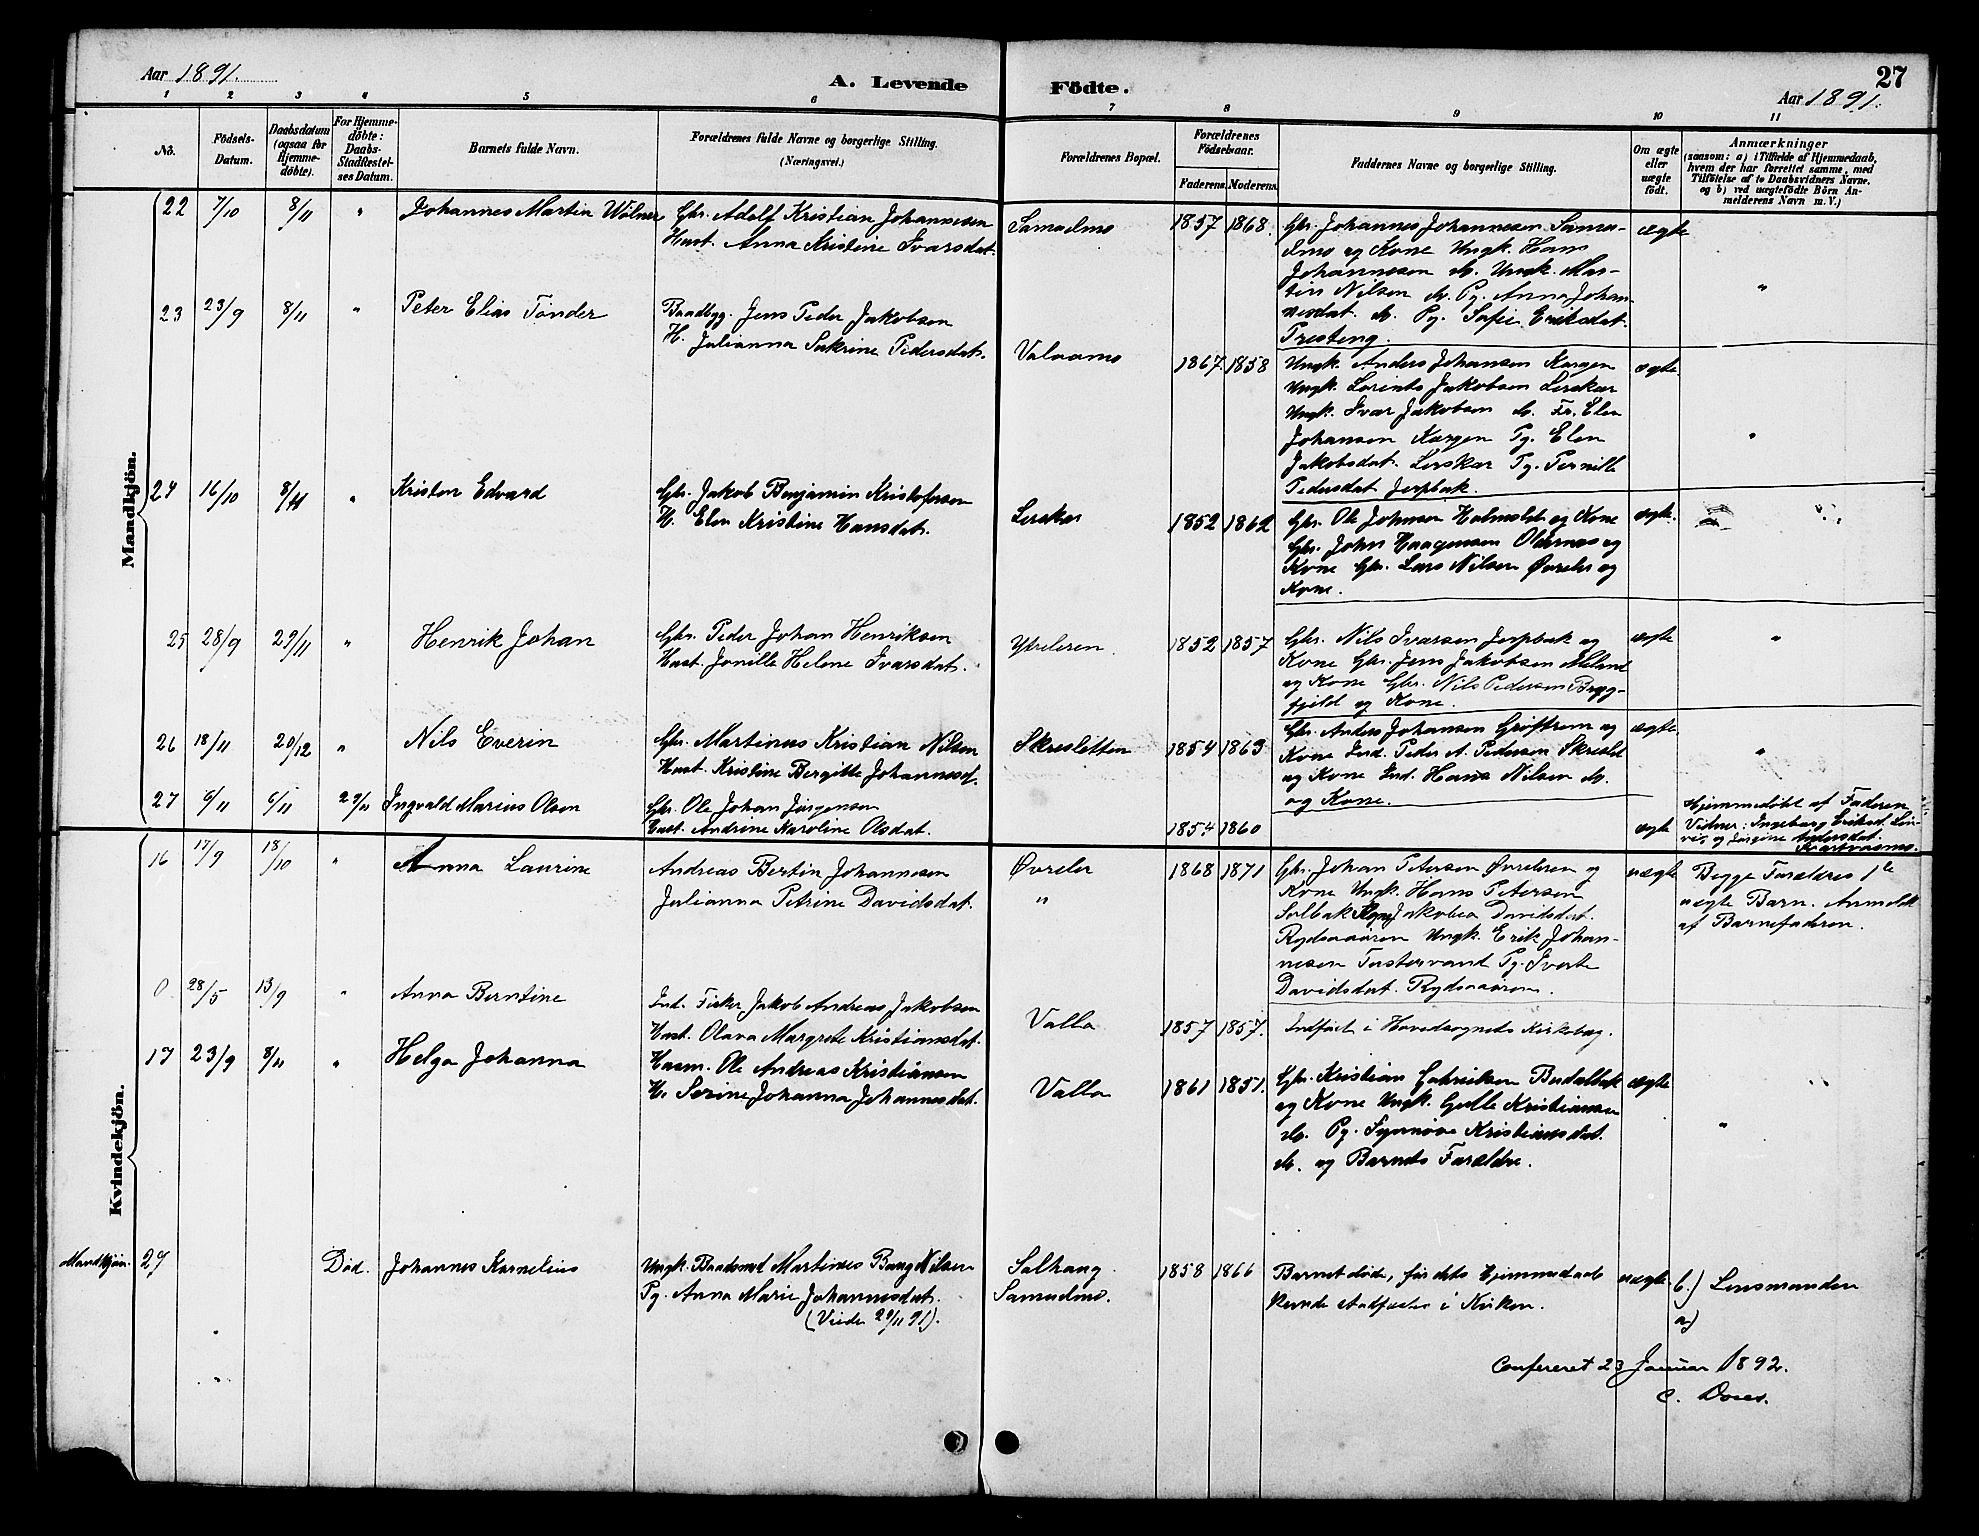 Aar 1891.
A. Levende Födte.
27
Aar 1891.
1 2 3 4 5 6 7 8 9 10 11
No.
Födsels-
Datum.
Daabsdatum
(ogsaa for
Hjemme-
döbte).
For Hjemme-
döbte:
Daabs-
Stadfæstel-
ses Datum.
Barnets fulde Navn.
Forældrenes fulde Navne og borgerlige Stilling.
(Næringsvei.)
Forældrenes Bopæl.
Forældrenes
Födselsaar.
Faderens. Moderens.
Faddernes Navne og borgerlige Stilling.
Om ægte
eller
uægte
födt.
Anmærkninger
(saasom: a) i Tilfælde af Hjemmedaab,
hvem der har forrettet samme, med
Tilföielse af to Daabsvidners Navne,
og b) ved uægtefödte Börn An-
melderens Navn m. V.)
Mandkjön.
22 7/10 8/11 " Johannes Martin Wölner
Gbr. Adolf Kristian Johannesen
Hust. Anna Kristine Ivarsdat.
Samuelmo 1857 1868.
Gbr. Johannes Johannesen Samu-
elmo og Kone Ungk. Hans
Johannesen do. Ungk. Mar-
tin Nilsen do. Pg. Anna Johan-
nesdat. do. Pg. Sofie Eriksdat.
Presteng.
ægte "
23 23/9 8/11 " Peter Elias Tönder
Baadbyg. Jens Peder Jakobsen
H. Julianna Sakrine Pedersdat.
1867 1858
Ungk. Anders Johansen
Ungk. Lorents Jakobsen Lerskar
Ungk. Ivar Jakobsen do. Fr. Elen
Johansen Pg. Elen
Jakobsdat. Lerskar Pg. Pernille
Pedersdat Jerpbak.
ægte "
24 16/10 8/11 " Kristen Edvard
Gbr. Jakob Benjamin Kristofersen
H. Elen Kristine Hansdat.
Lerskar 1852 1862
Gbr. Ole Johnsen Holmslet og Kone
Gbr. John Haagensen Oldernes og
Kone Gbr. Lars Nilsen Övreler og
Kone.
ægte.
25 28/9 29/11 " Henrik Johan
Gbr. Peder Johan Henriksen
Hust. Jonille Helene Ivarsdat.
Ytreleren. 1852 1857
Gbr. Nils Ivarsen Jerpbak og
Kone Gbr. Jens Jakobsen
og Kone Gbr. Nils Pedersen Bryg-
fjeld og Kone.
ægte "
26 18/11 20/12 " Nils Everin
Gbr. Martinus Kristian Nilsen
Hust. Kristine Bergitte Johannesd.
Skresletten 1854 1863
Gbr. Anders Johansen Gröftrem og
Kone Ind. Peder A. Pedersen Skreslet
og Kone Ind. Hans Nilsen do.
og Kone.
ægte. "
27 6/11 6/11 29/11 Ingvald Marius Olsen
Gbr. Ole Johan Jörgensen
Hust. Andrine Karoline Olsdat.
1854 1860
ægte
Hjemmedöbt af Faderen
Vidner: Ingeborg Eriksd.
og Jörgine Andersdat.
Kvindekjön.
16 17/9 18/10 " Anna Laurine
Andreas Bertin Johannesen
Julianna Petrine Davidsdat.
Övreler
"
1868 1871
Gbr. Johan Petersen Övreleren og
Kone Ungk. Hans Petersen
Solbak Jakobea Davidsdat.
Rydsaaaren Ungk. Erik Johan-
nesen Tustervand Pg.
Davidsdat. Rydsaaaren.
uægte
Begge Forældres 1te
uægte Barn. Anmeldt
af Barnefaderen.
0 28/5 13/9 " Anna Berntine
Ind. Fisker Jakob Andreas Jakobsen
Hust. Olava Margrete Kristiansdat.
Valla 1857 1857.
Indført i Hovedsognets Kirkebog.
17 23/9 8/11 " Helga Johanna
Husm. Ole Andreas Kristiansen
H. Serine Johanna Johannesdat.
Valla 1861 1851.
Gbr. Kristian Gabrielsen Budalbak
og Kone Ungk. Gulle Kristiansen
do. Pg. Synnöve Kristiansdat.
do. og Barnets Forældre.
ægte "
Mandkjön. 27 Död. Johannes Kornelius
Ungk. Baadsmd Martines Bang Nilsen
Pg. Anna Marie Johannesdat.
(Viede 29/11 91).
Solhaug.
Samuelmo.
1858 1866
Barnet döde, för dets Hjemmedaab
kunde stadfæstes i Kirken.
uægte b.) Lensmanden
a)
Confereret 23 Januar 1892.
C.